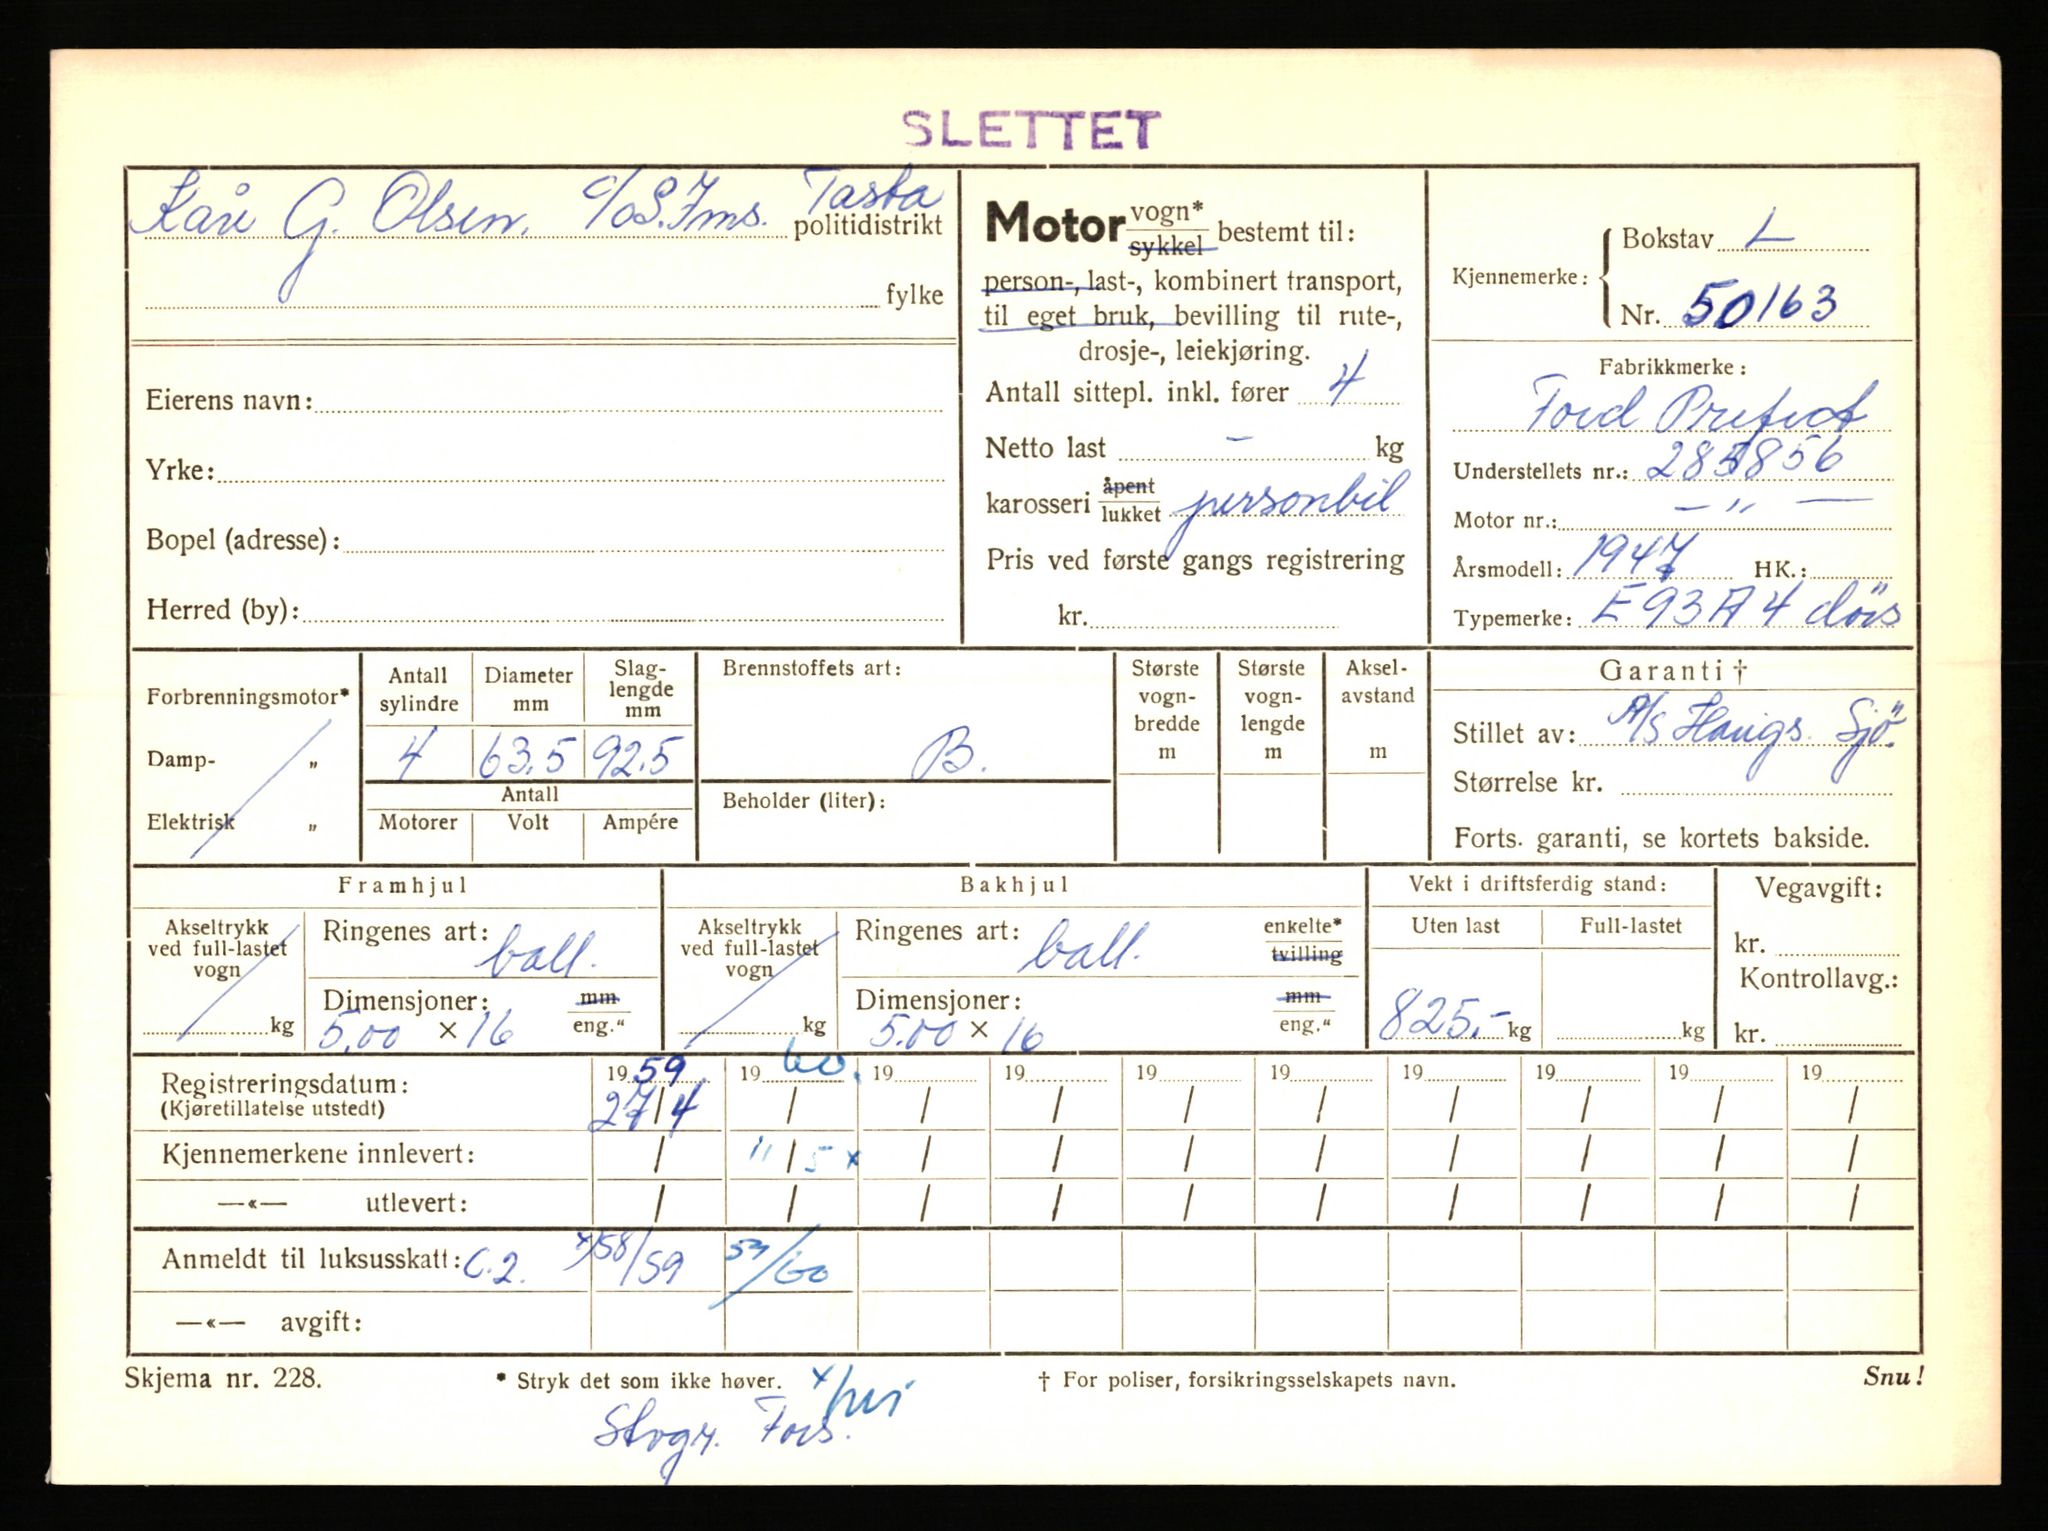 SLETTET
Kåre G. Olsen, c/o S. Ims. Tasta
politidistrikt
fylke
Eierens navn:
Yrke:
Bopel (adresse):
Herred (by):
Motor vogn* sykkel bestemt til:
person-, last-, kombinert transport,
til eget bruk, bevilling til rute-,
drosje-, leiekjøring.
Antall sittepl. inkl. fører 4
Netto last - kg
karosseri åpent lukket personbil
Pris ved første gangs registrering
kr.
Kjennemerke: Bokstav L
Nr. 50163
Fabrikkmerke:
Ford Prefect
Understellets nr.:
Motor nr.: — " —
Årsmodell: 1947 HK.:
Typemerke: E93A 4 dörs
Forbrenningsmotor*
Damp- „
Elektrisk „
Antall sylindre Diameter mm Slag-lengde mm
4 63.5 92.5
Antall
Motorer Volt Ampére
Brennstoffets art:
B.
Beholder (liter):
Største vogn-bredde m
Største vogn-lengde m
Aksel-avstand m
Garanti †
Stillet av: A/S Haugs. Sjö.
Størrelse kr.
Forts. garanti, se kortets bakside.
Framhjul
Akseltrykk ved full-lastet vogn
kg
Ringenes art: ball.
Dimensjoner: mm
5.00 × 16 eng."
Bakhjul
Akseltrykk ved full-lastet vogn
kg
Ringenes art: ball. enkelte* tvilling
Dimensjoner: mm
5.00 × 16 eng."
Vekt i driftsferdig stand:
Uten last Full-lastet
825.- kg kg
Vegavgift:
kr.
Kontrollavg.:
kr.
Registreringsdatum: 1959 1960. 19 19 19 19 19 19 19 19
(Kjøretillatelse utstedt) 27/4 / / / / / / / / /
Kjennemerkene innlevert: / 11/5 x / / / / / / / /
—«— utlevert: / / / / / / / / / /
Anmeldt til luksusskatt: C.2. x/58/59 59/60
—«— avgift:
Skjema nr. 228. * Stryk det som ikke høver. † For poliser, forsikringsselskapets navn. Snu!
Stvgr. Fors.